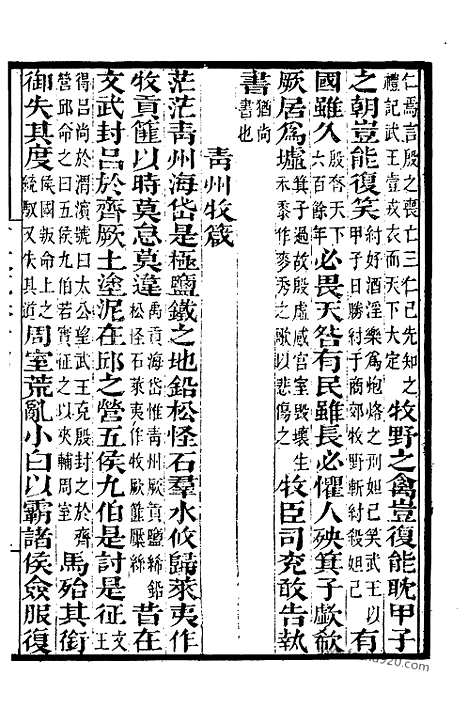 仁焉言殷之喪亡三仁已先知之
禮記武王壹戎衣而天下大定
牧野之禽豈復能耽甲子
之朝豈能復笑
紂好酒淫樂爲炮烙之刑妲己笑武王以
甲子日勝紂于商郊牧野斬紂殺妲己
有
國雖久
殷天下
六百餘年
必畏天咎有民雖長必懼人殃箕子歔欷
厥居爲墟
箕子過故殷虛感宮室毀壞生
禾黍作麥秀之歌以悲傷之
牧臣司兖敢告執
書
猶尚
書也
青州牧箴
茫茫青州海岱是極鹽鐵之地鉛松怪石羣水攸歸萊夷作
牧貢篚以時莫怠莫違
禹貢海岱惟青州厥貢鹽絺鉛
松怪石萊夷作牧厥篚檿絲
昔在
文武封呂於齊厥土塗泥在邱之營五侯九伯是討是征
文
王
得呂尚於渭濱號曰太公望武王克殷封之於齊
營邱命之曰五侯九伯若實征之以夾輔周室
馬殆其銜
御失其度
侯國叛命上之
統馭又失其道
周室荒亂小白以霸諸侯僉服復